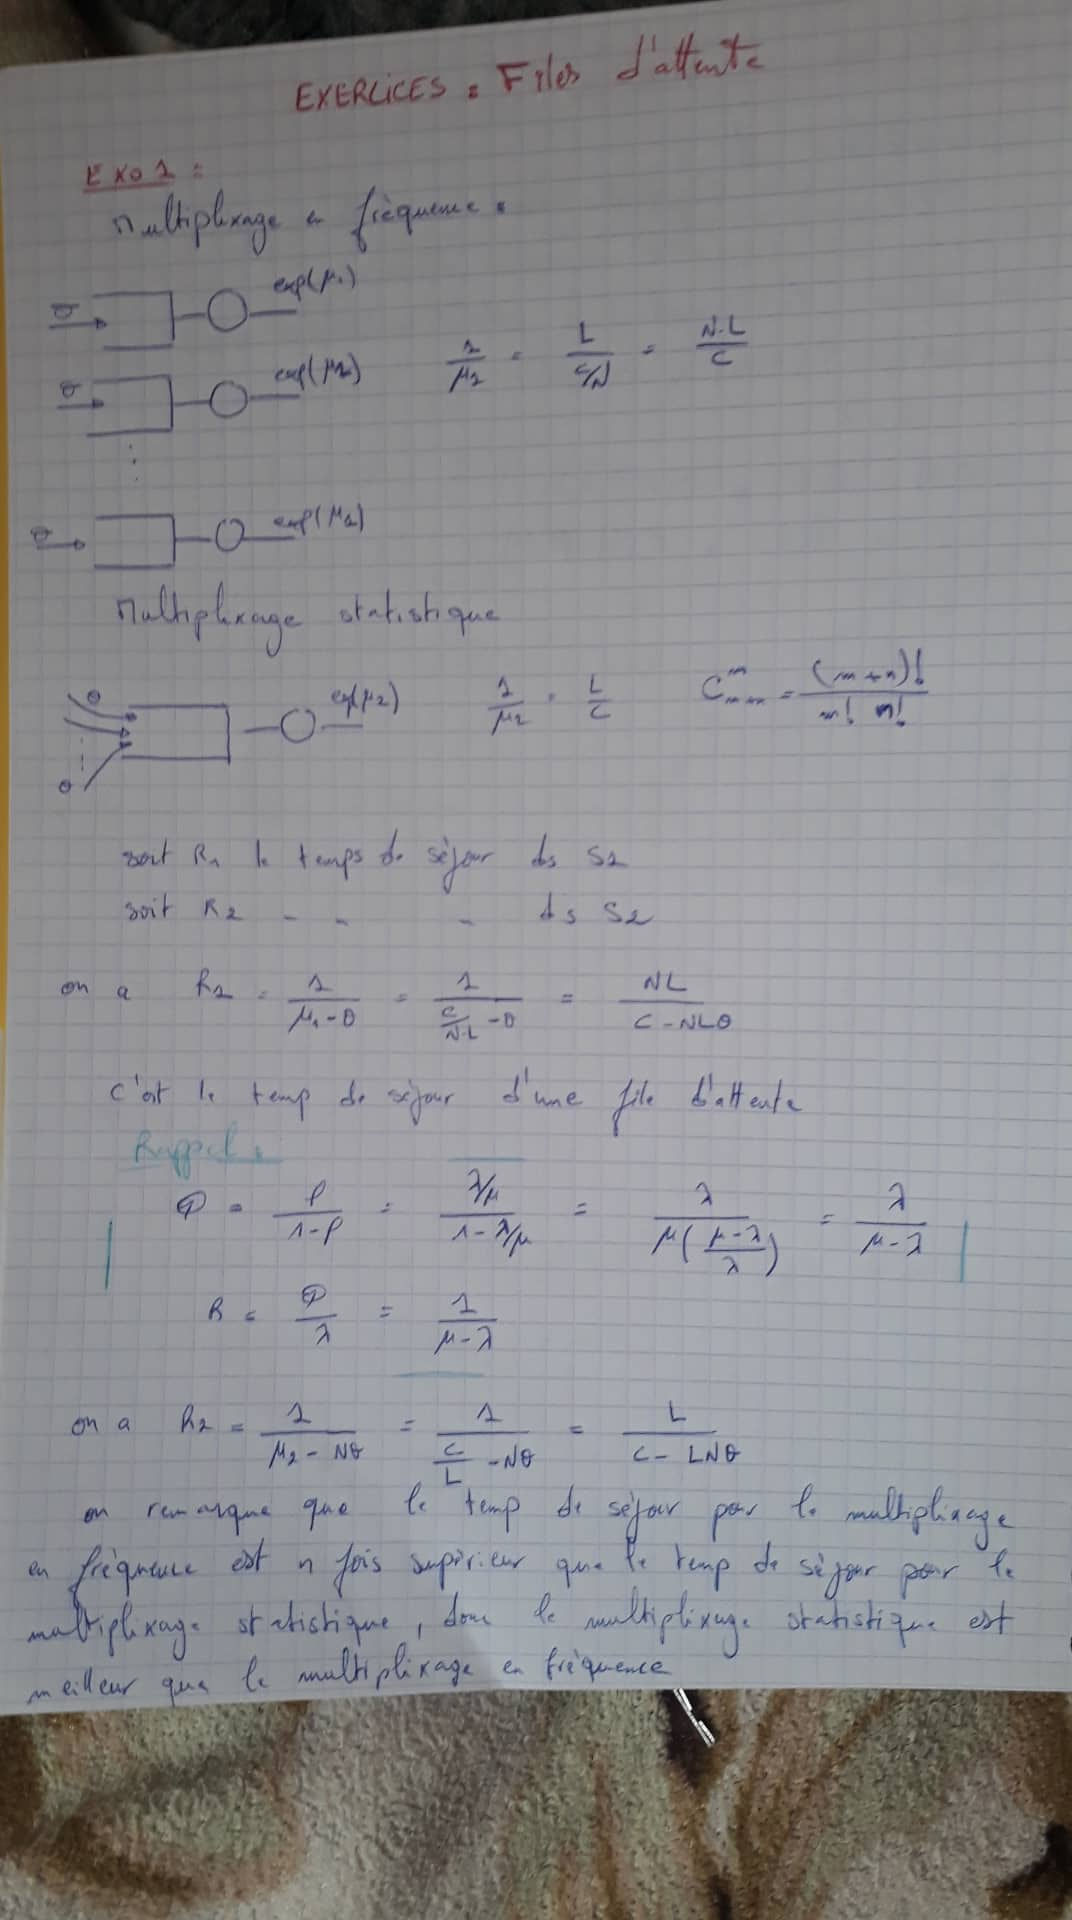 EXERCICES : Files d'attente
Exo 1 :
Multiplexage en fréquence :
θ exp(μ1)
1/μ1 = L/(C/N) = N.L/C
θ exp(μ1)
⋮
θ exp(μ1)
Multiplexage statistique
θ exp(μ2) 1/μ2 = L/C C^m_{m+n} = (m+n)!/(m! n!)
θ
soit R1 le temps de séjour ds S1
soit R2 - - - ds S2
on a R1 = 1/(μ1-θ) = 1/(C/(N.L) - θ) = NL/(C-NLθ)
c'est le temp de séjour d'une file d'attente
Rappel :
Q = ρ/(1-ρ) = (λ/μ)/(1-λ/μ) = λ/(μ((μ-λ)/λ)) = λ/(μ-λ)
R = Q/λ = 1/(μ-λ)
on a R2 = 1/(μ2-Nθ) = 1/(C/L - Nθ) = L/(C-LNθ)
on remarque que le temp de séjour pour le multiplixage
en fréquence est n fois supérieur que le temp de séjour pour le
multiplixage statistique, donc le multiplixage statistique est
meilleur que le multiplixage en fréquence